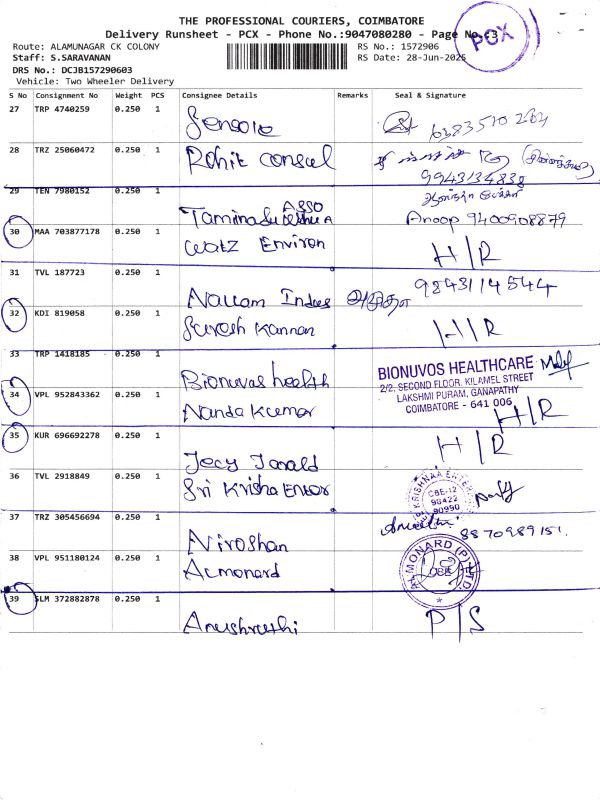 THE PROFESSIONAL COURIERS, COIMBATORE
Delivery Runsheet - PCX - Phone No.:9047080280 - Page No.:3
PCX
Route: ALAMUNAGAR CK COLONY
RS No.: 1572906
Staff: S.SARAVANAN
RS Date: 28-Jun-2025
DRS No.: DCJB157290603
Vehicle: Two Wheeler Delivery
S No Consignment No Weight PCS Consignee Details Remarks Seal & Signature
27 TRP 4740259 0.250 1
6383510264
28 TRZ 25060472 0.250 1 Rohit Consul
9943134838
29 TEN 7980152 0.250 1 ASSO
Anoop 9400908879
30 MAA 703877178 0.250 1 Watz Environ H/R
31 TVL 187723 0.250 1 9843114544
32 KDI 819058 0.250 1 Suresh Kannan H/R
33 TRP 1418185 0.250 1 Bionuvas health
BIONUVOS HEALTHCARE
2/2, SECOND FLOOR, KILAMEL STREET
LAKSHMI PURAM, GANAPATHY
COIMBATORE - 641 006
34 VPL 952843362 0.250 1 Nanda Kumar H/R
35 KUR 696692278 0.250 1 Jecy Jarald H/R
36 TVL 2918849 0.250 1 Sri Krisha Enter
KRISHNAA ENTER
CBE-12
98422
90990
37 TRZ 305456694 0.250 1 Niroshan 8870989151.
38 VPL 951180124 0.250 1 Acmonard
ALMONARD (P) LTD.
CBE
39 SLM 372882878 0.250 1 Anushruthi P/S